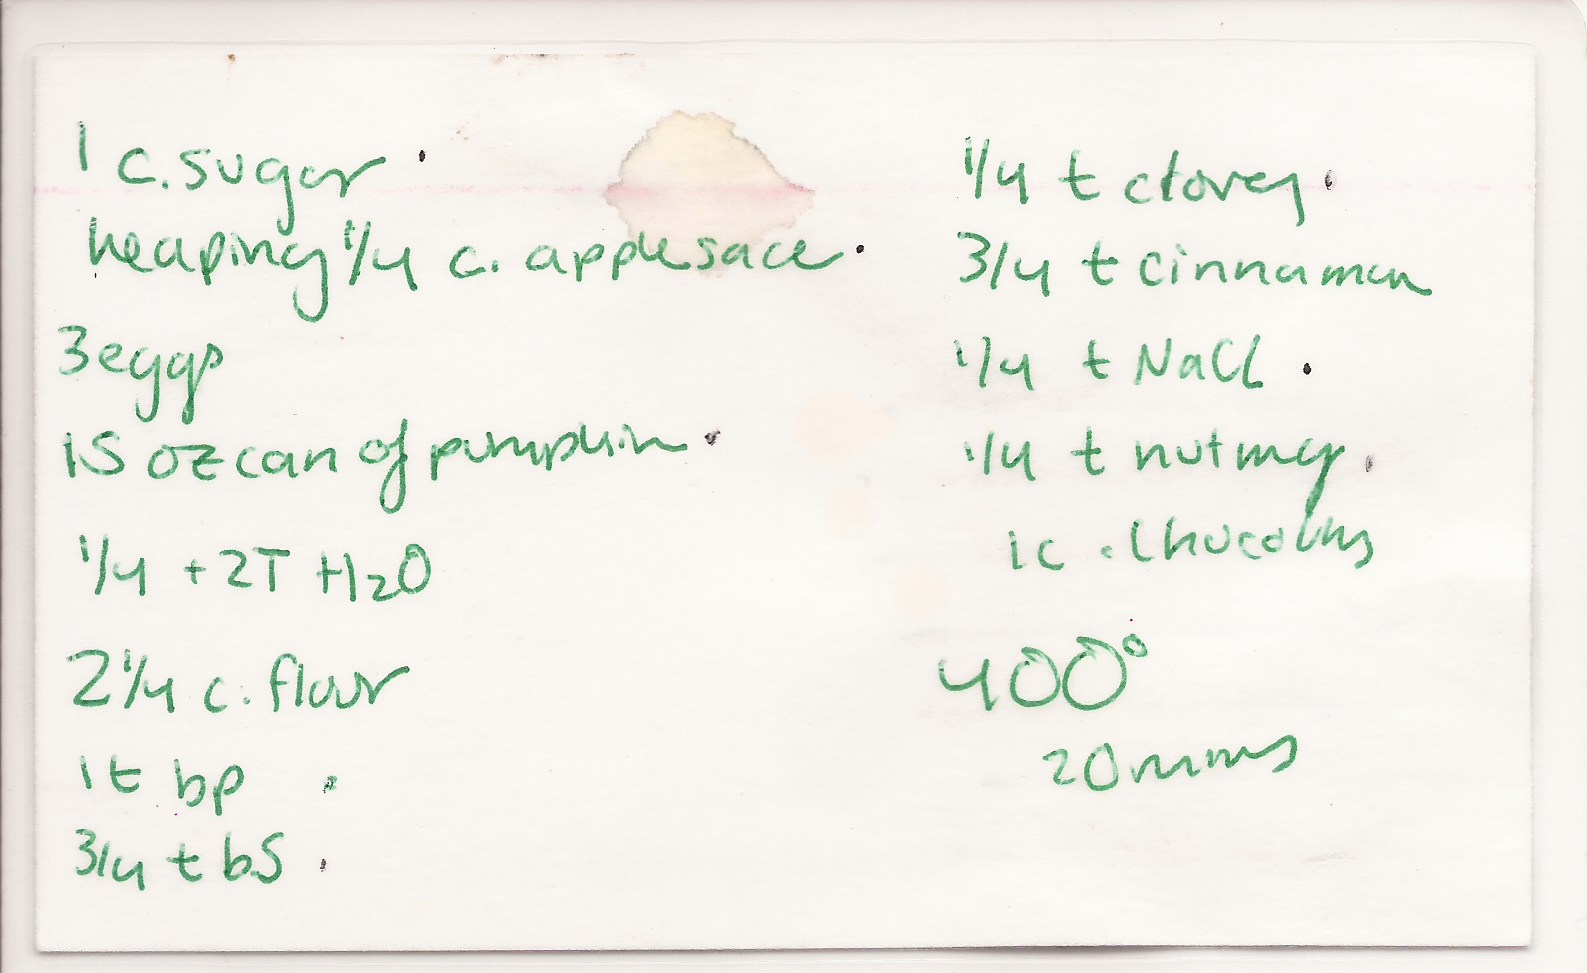 1 c. sugar
heaping 1/4 c. applesace
3 eggs
15 oz can of pumpkin
1/4 + 2T H2O
2 1/4 c. flour
1t bp
3/4 t bs
1/4 t cloves
3/4 t cinnamon
1/4 t NaCl
1/4 t nutmeg
1 c. chocolates
400°
20 mins